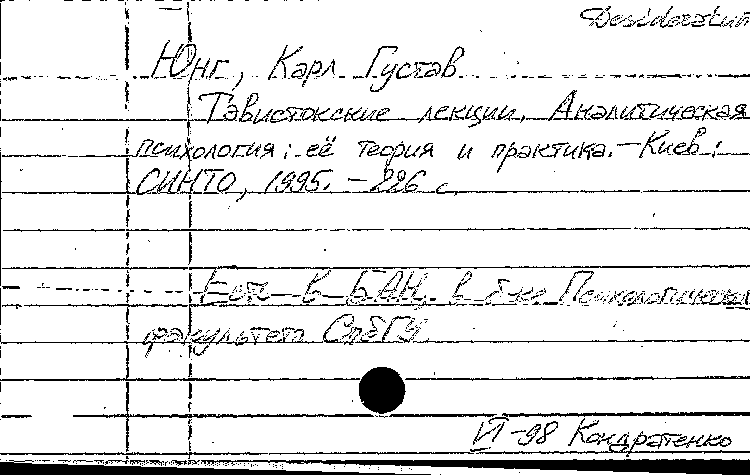 Desideratum
Юнг, Карл Густав
Тавистокские лекции. Аналитическая
психология: её теория и практика. – Киев:
СИНТО, 1995. – 226 с.
Есть в БАН, в б-ке Психологическ
факультета СПбГУ
VI-98 Кондратенко